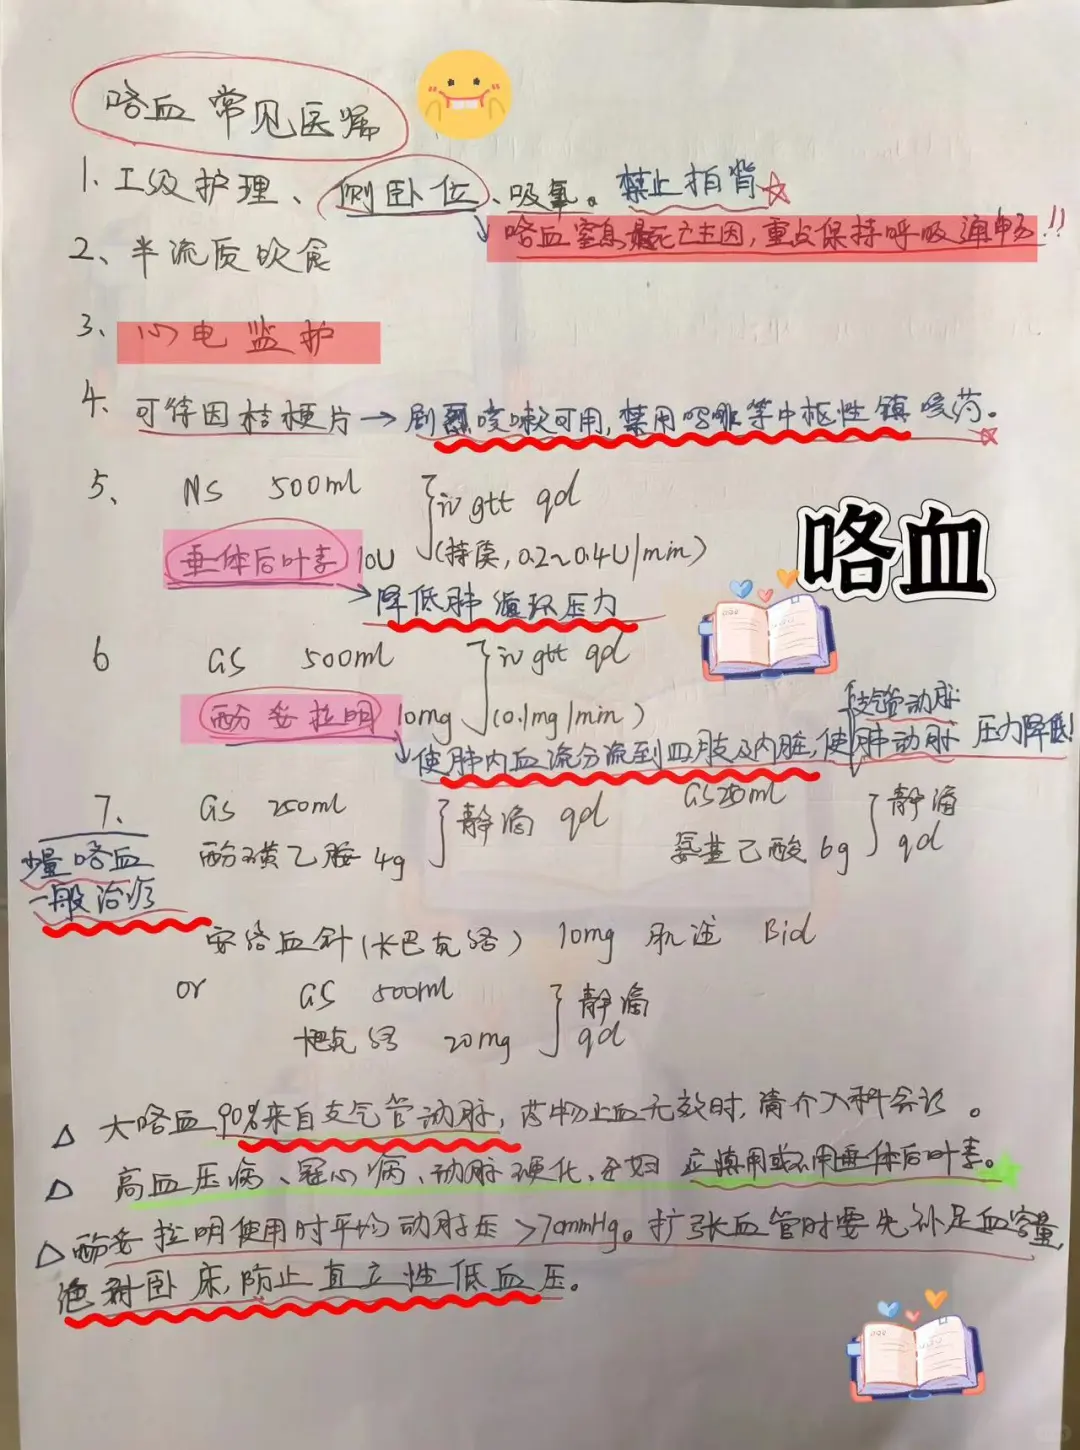 咯血常见医嘱
1、I级护理、侧卧位、吸氧。禁止拍背☆
咯血窒息是死亡主因,重点保持呼吸通畅!!
2、半流质饮食
3、心电监护
4、可待因桔梗片→剧烈咳嗽可用,禁用吗啡等中枢性镇咳药。☆
5、NS 500ml iv gtt qd
垂体后叶素 10U (持续,0.2~0.4U/min)
→降低肺循环压力
咯血
6 GS 500ml iv gtt qd
酚妥拉明 10mg (0.1mg/min)
支气管动脉
使肺内血流分流到四肢及内脏,使肺动脉压力降低!
7、GS 250ml 静滴 qd
酚磺乙胺 4g
GS 250ml 静滴
氨基己酸 6g qd
少量咯血
一般治疗
安络血针(卡巴克络) 10mg 肌注 Bid
or GS 500ml 静滴
卡巴克络 20mg qd
△ 大咯血90%来自支气管动脉,药物止血无效时,请介入科会诊。
△ 高血压病、冠心病、动脉硬化、孕妇 应慎用或不用垂体后叶素。
△ 酚妥拉明使用时平均动脉压>70mmHg。扩张血管时要先补足血容量,
绝对卧床,防止直立性低血压。